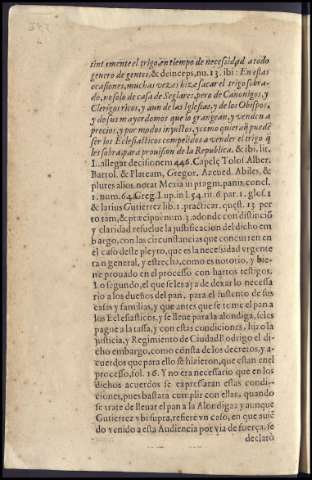 tintemente el trigo en tiempo de necesidad a todo
genero de gentes, & deinceps, nu. 13. ibi: En estas
ocasiones, muchas vezes hize sacar el trigo sobra-
do, no solo de casa de Seglares, pero de Canonigos, y
Clerigos ricos, y aun de las Iglesias, y de los Obispos,
y de sus mayordomos que lo grangean, y venden a
precios, y por modos injustos, y como quier q̃ puedẽ
ser los Eclesiasticos compelidos a vender el trigo q̃
les sobra para prouision de la Republica. & ibi, lit.
L. allegar decisionem 446. Capelę Tolos. Alber.
Bartol. & Flateam, Gregor. Azebed. Abiles, &
plures alios notat Mexia in pragm. panis, concl.
1. num. 64. Greg. Lup. in l. 54. tit. 6. par. 1. glos. 1
& latius Gutierrez lib. 1. practicar. quęst. 13. per
totam, & pręcipuè num. 3. donde con distinciõ
y claridad resuelue la justificacion del dicho em
bargo, con las circunstancias que concurren en
el caso deste pleyto, que es la necesidad vrgente
tan general, y estrecha, como es notorio, y bie-
ne prouado en el processo con hartos testigos.
Lo segundo, el que se les aya de dexar lo necessa
rio a los dueños del pan, para el sustento de sus
casas y familias, y que antes que se tome el pan a
los Eclesiasticos, y se lleue para la alondiga, se les
pague a la tassa, y con estas condiciones, hizo la
justicia, y Regimiento de Ciudad Rodrigo el di-
cho embargo, como cõsta de los decretos, y a-
cuerdos que para ello se hizieron, que estan en el
processo, fol. 16. Y no era necessario que en los
dichos acuerdos se expressaran estas condi-
ciones, pues bastaua cumplir con ellas, quando
se trate de lleuar el pan a la Alondiga: y aunque
Gutierrez vbi supra, refiere vn caso, en que auiẽ
do venido a esta Audiencia por via de fuerça, se
declarò